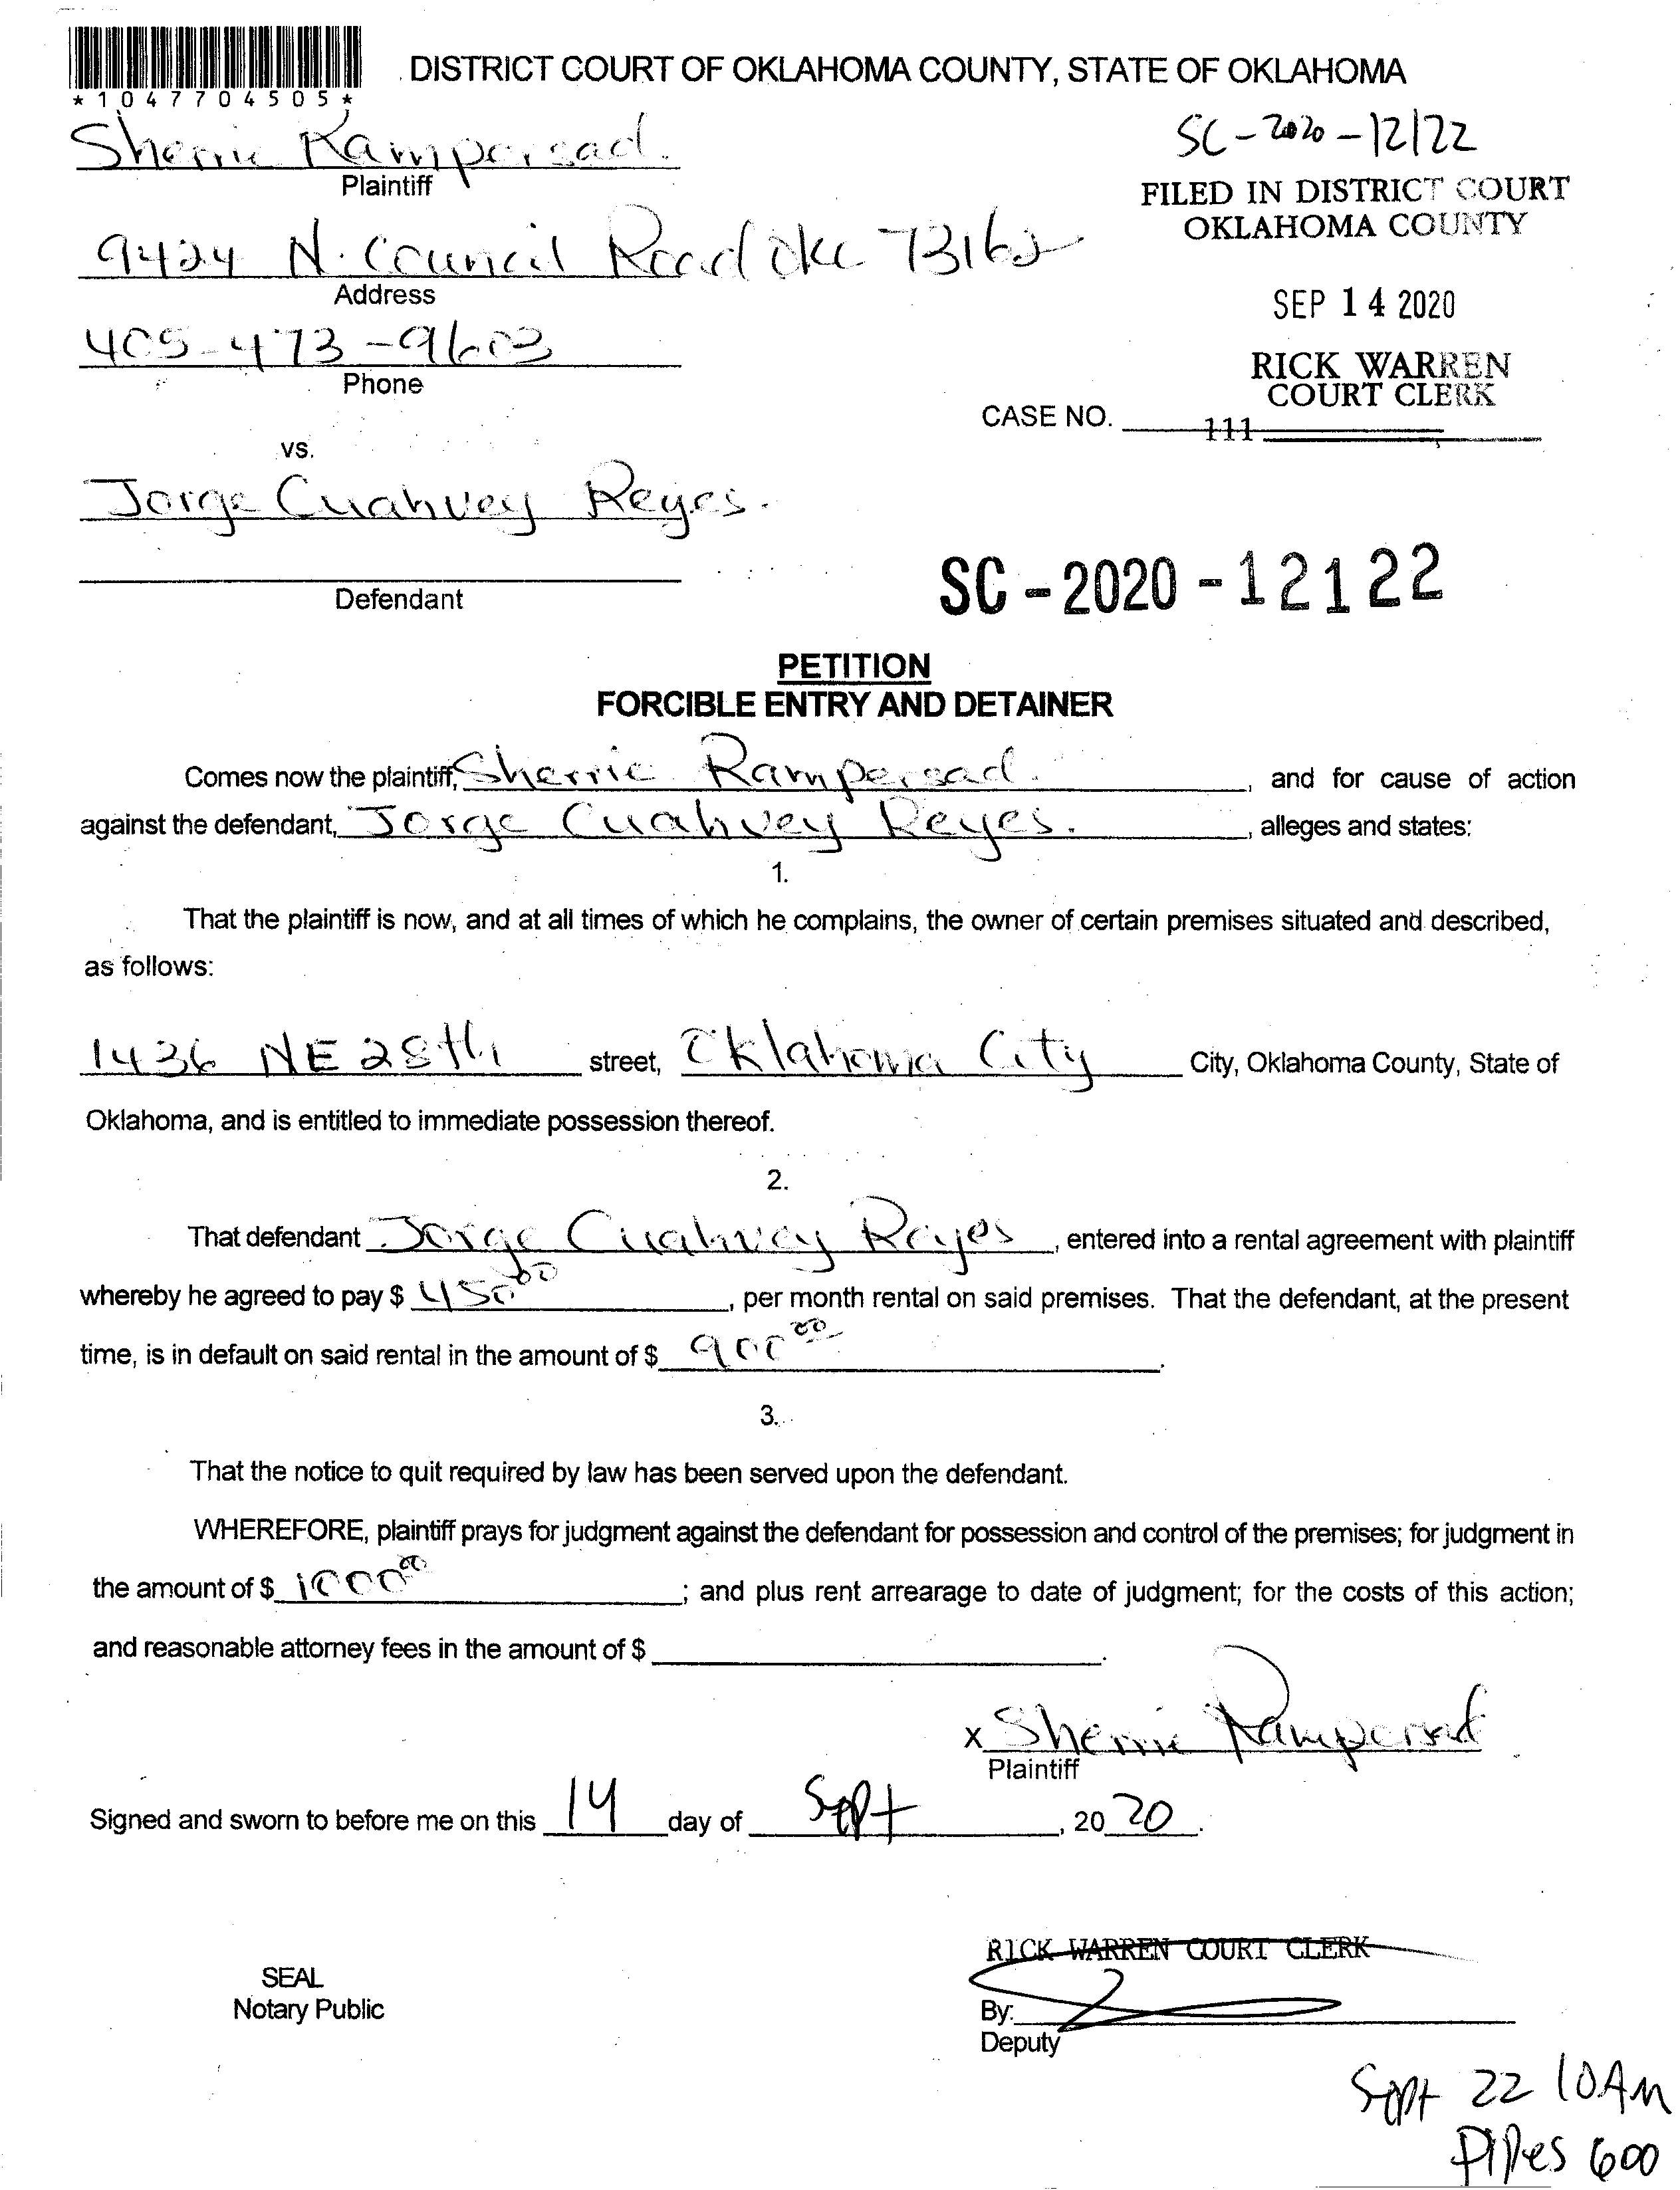 *1047704505*
DISTRICT COURT OF OKLAHOMA COUNTY, STATE OF OKLAHOMA
Sherrie Rampersad.
Plaintiff
SC-2020-12122
FILED IN DISTRICT COURT
OKLAHOMA COUNTY
9424 N. Council Road Okc 73162
Address
SEP 14 2020
405-473-9603
Phone
RICK WARREN
COURT CLERK
CASE NO.
111
vs.
Jorge Cuahuey Reyes.
Defendant
SC-2020-12122
PETITION
FORCIBLE ENTRY AND DETAINER
Comes now the plaintiff, Sherrie Rampersad. , and for cause of action
against the defendant, Jorge Cuahuey Reyes. , alleges and states:
1.
That the plaintiff is now, and at all times of which he complains, the owner of certain premises situated and described,
as follows:
1436 NE 28th street, Oklahoma City City, Oklahoma County, State of
Oklahoma, and is entitled to immediate possession thereof.
2.
That defendant Jorge Cuahuey Reyes , entered into a rental agreement with plaintiff
whereby he agreed to pay $ 450.00 , per month rental on said premises. That the defendant, at the present
time, is in default on said rental in the amount of $ 900.00 .
3.
That the notice to quit required by law has been served upon the defendant.
WHEREFORE, plaintiff prays for judgment against the defendant for possession and control of the premises; for judgment in
the amount of $ 1000.00 ; and plus rent arrearage to date of judgment; for the costs of this action;
and reasonable attorney fees in the amount of $ .
x Sherrie Rampersad
Plaintiff
Signed and sworn to before me on this 14 day of Sept , 20 20 .
RICK WARREN COURT CLERK
SEAL
Notary Public
By:
Deputy
Sept 22 10AM
Pipes 600